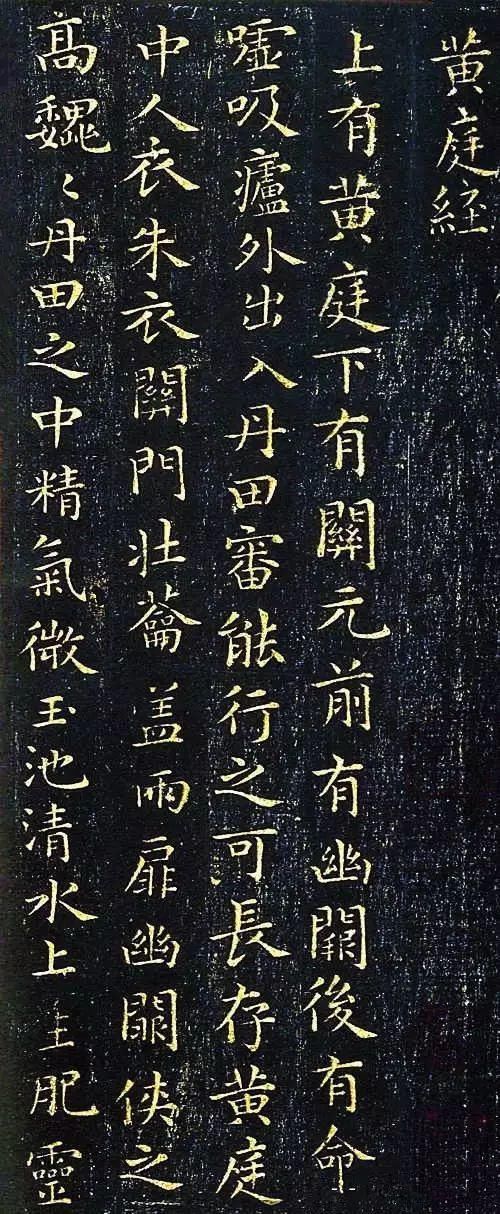 黄庭経
上有黄庭下有關元前有幽闕後有命
嘘吸廬外出入丹田審能行之可長存黄庭
中人衣朱衣關門壯蘥盖兩扉幽闕俠之
高巍〻丹田之中精氣微玉池清水上生肥靈